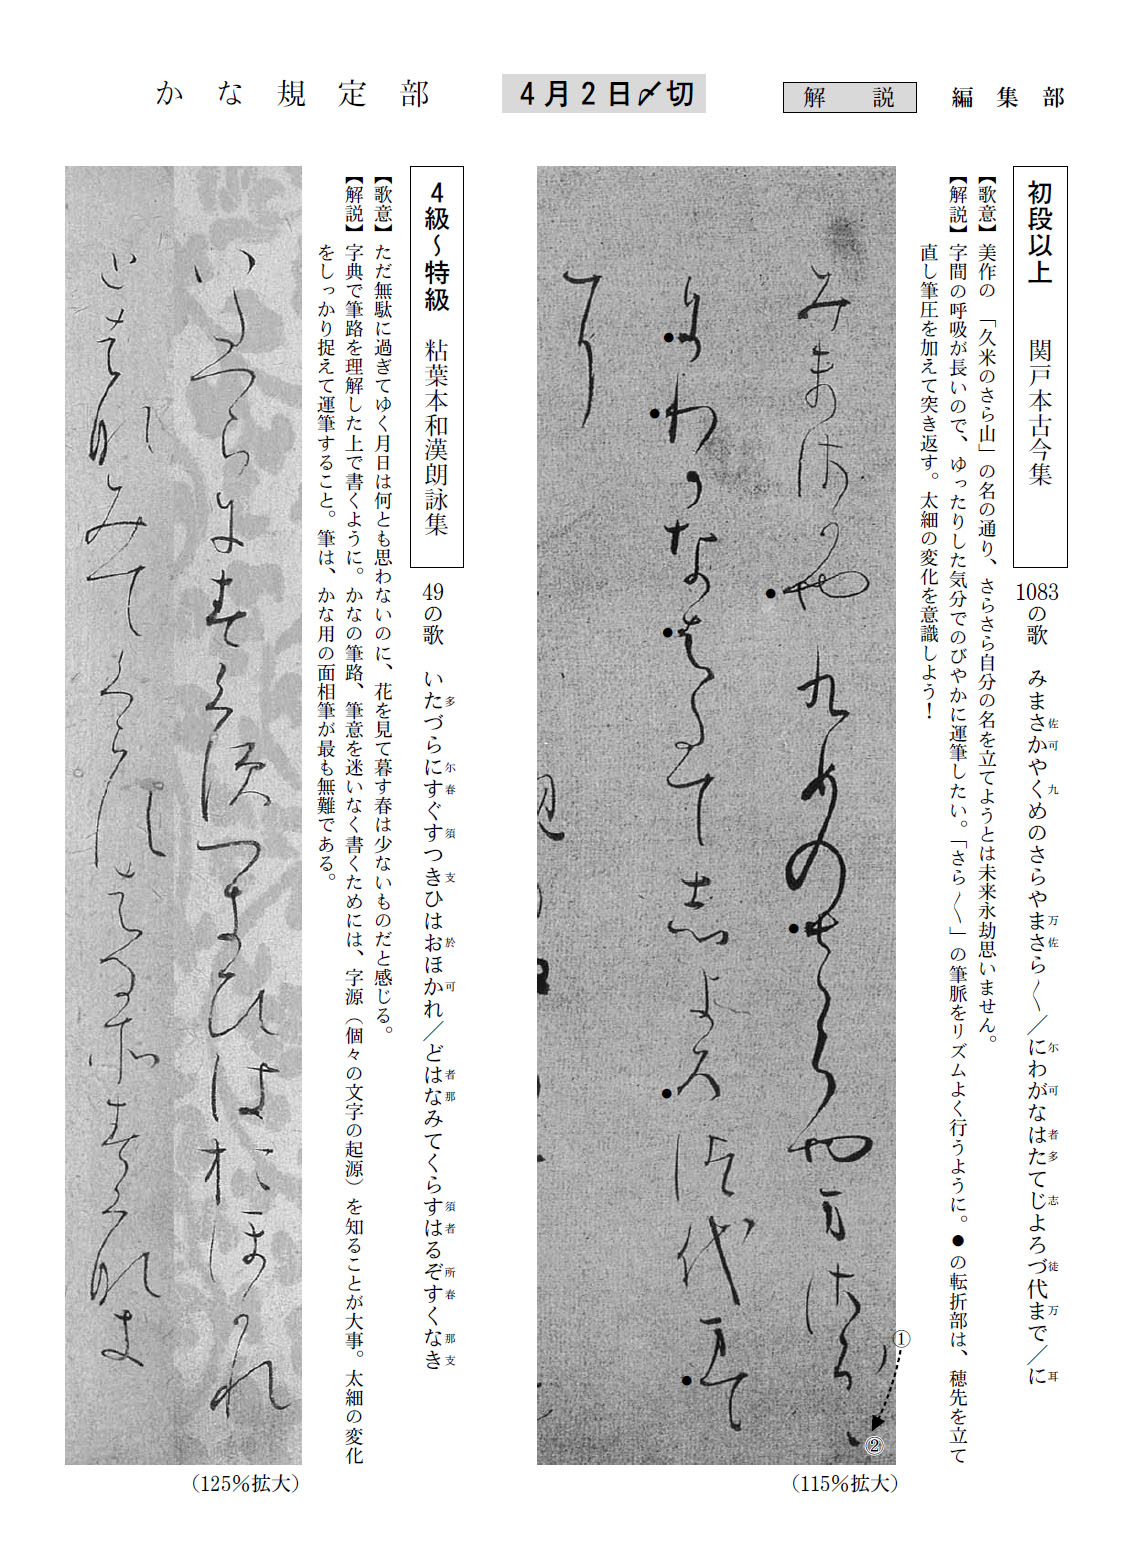 かな規定部
4月2日〆切
解説
編集部
初段以上 関戸本古今集
1083の歌 みまさかやくめのさらやまさら〱／にわがなはたてじよろづ代まで／に
佐可九万佐尓可者多志徒万耳
【歌意】美作の「久米のさら山」の名の通り、さらさら自分の名を立てようとは未来永劫思いません。
【解説】字間の呼吸が長いので、ゆったりした気分でのびやかに運筆したい。「さら〱」の筆脈をリズムよく行うように。●の転折部は、穂先を立て
直し筆圧を加えて突き返す。太細の変化を意識しよう！
みまさかや九めのさらや万佐ら〱
尓わ可なはたて志よろ徒代万て
耳
①
②
(115％拡大)
4級～特級 粘葉本和漢朗詠集
49の歌 いたづらにすぐすつきひはおほかれ／どはなみてくらすはるぞすくなき
多尓春須支於可者那須者所春那支
【歌意】ただ無駄に過ぎてゆく月日は何とも思わないのに、花を見て暮す春は少ないものだと感じる。
【解説】字典で筆路を理解した上で書くように。かなの筆路、筆意を迷いなく書くためには、字源（個々の文字の起源）を知ることが大事。太細の変化
をしっかり捉えて運筆すること。筆は、かな用の面相筆が最も無難である。
いたつらに春くす徒支ひはおほ可れ
と者那みてくら須者る所春く那支
(125％拡大)